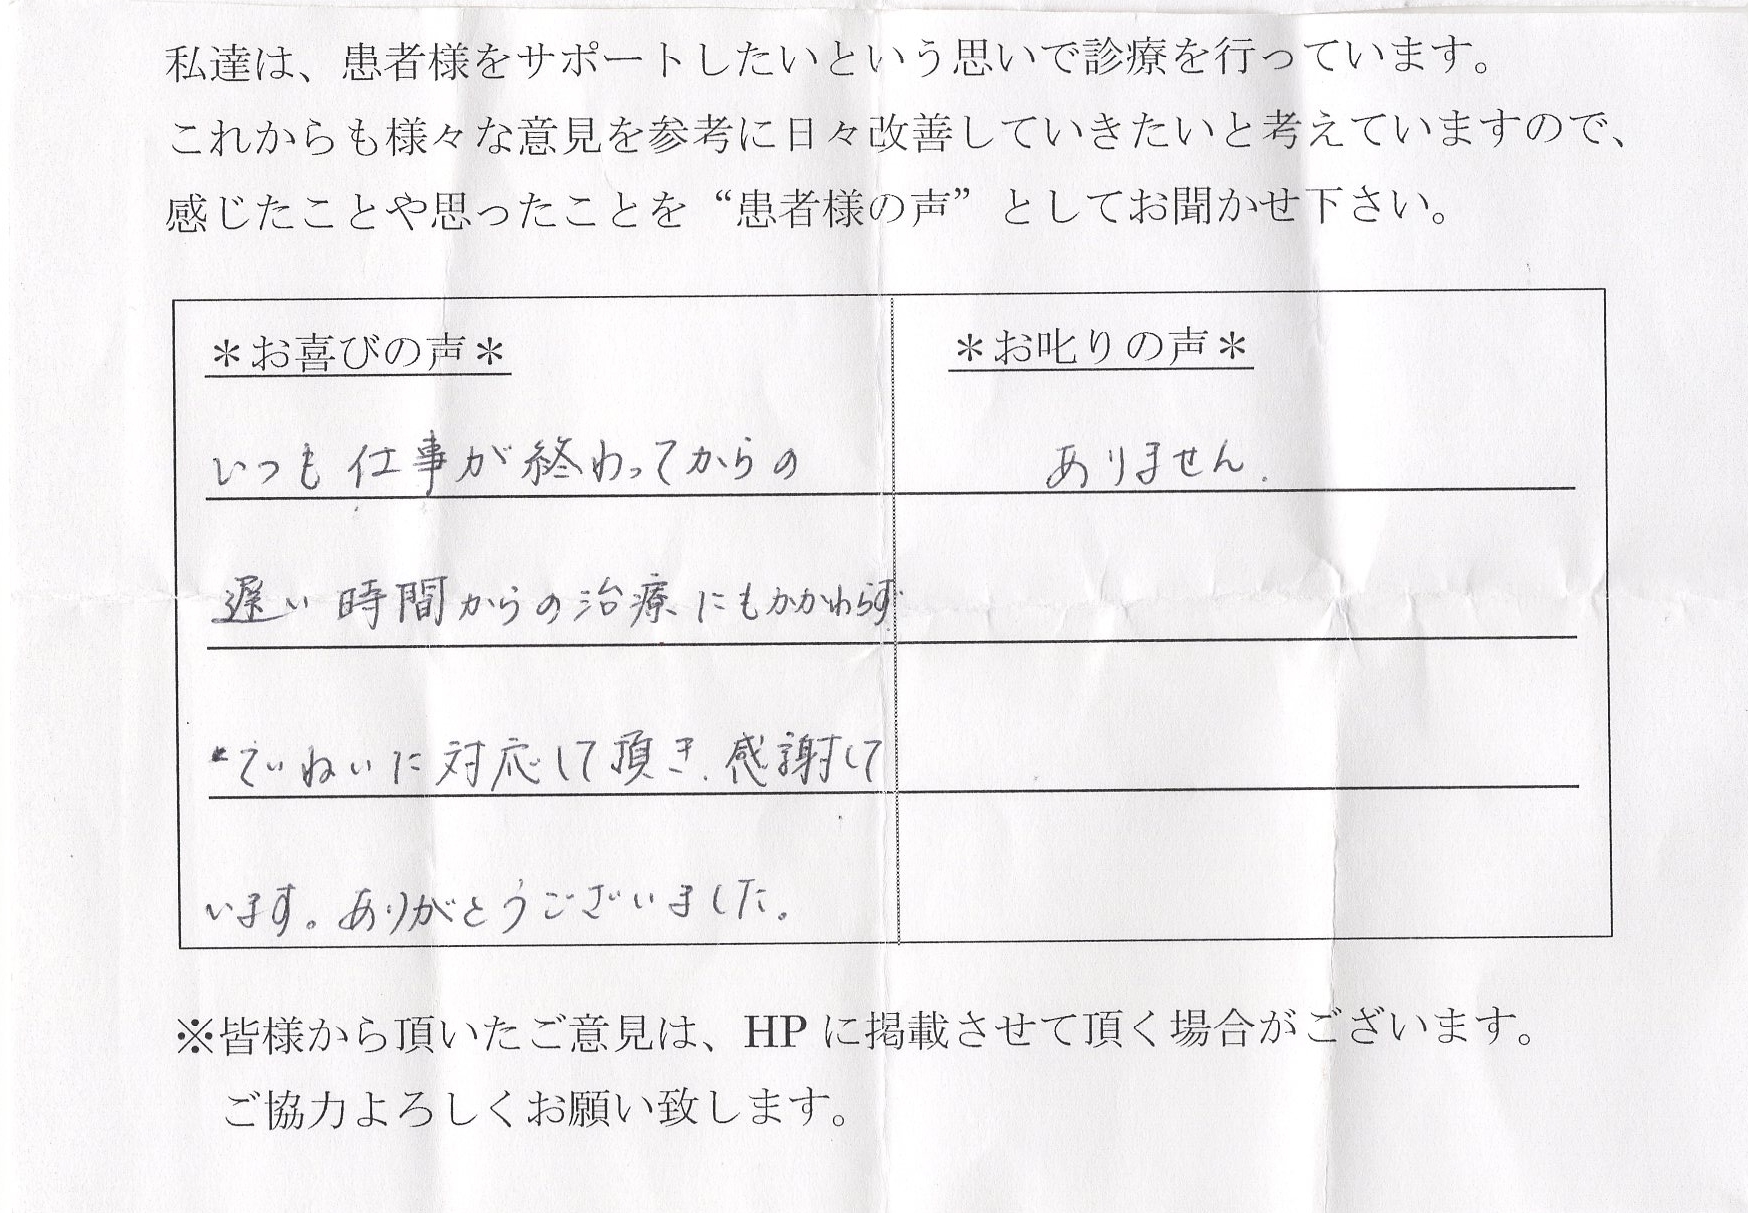 私達は、患者様をサポートしたいという思いで診療を行っています。
これからも様々な意見を参考に日々改善していきたいと考えていますので、
感じたことや思ったことを“患者様の声”としてお聞かせ下さい。
＊お喜びの声＊
いつも仕事が終わってからの
遅い時間からの治療にもかかわらず
ていねいに対応して頂き、感謝して
います。ありがとうございました。
＊お叱りの声＊
ありません.
※皆様から頂いたご意見は、HPに掲載させて頂く場合がございます。
ご協力よろしくお願い致します。